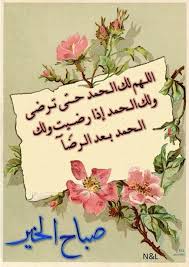 اللهم لك الحمد حتى ترضى
ولك الحمد إذا رضيت ولك
الحمد بعد الرضا
صباح الخير
N&L